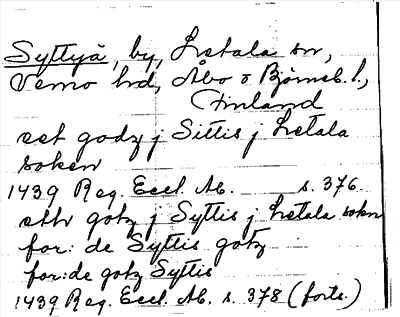 Syttyä, by, Letala sn,
Vemo hd, Åbo o Björneb. l.,
Finland
eet godz j Sittis j Letala
soken
1439 Reg. Eccl. Ab. s. 376.
ett gotz j Syttis j Letala sokn
for: de Syttis gotz
for: de gotz Syttis
1439 Reg. Eccl. Ab. s. 378 (forts.)